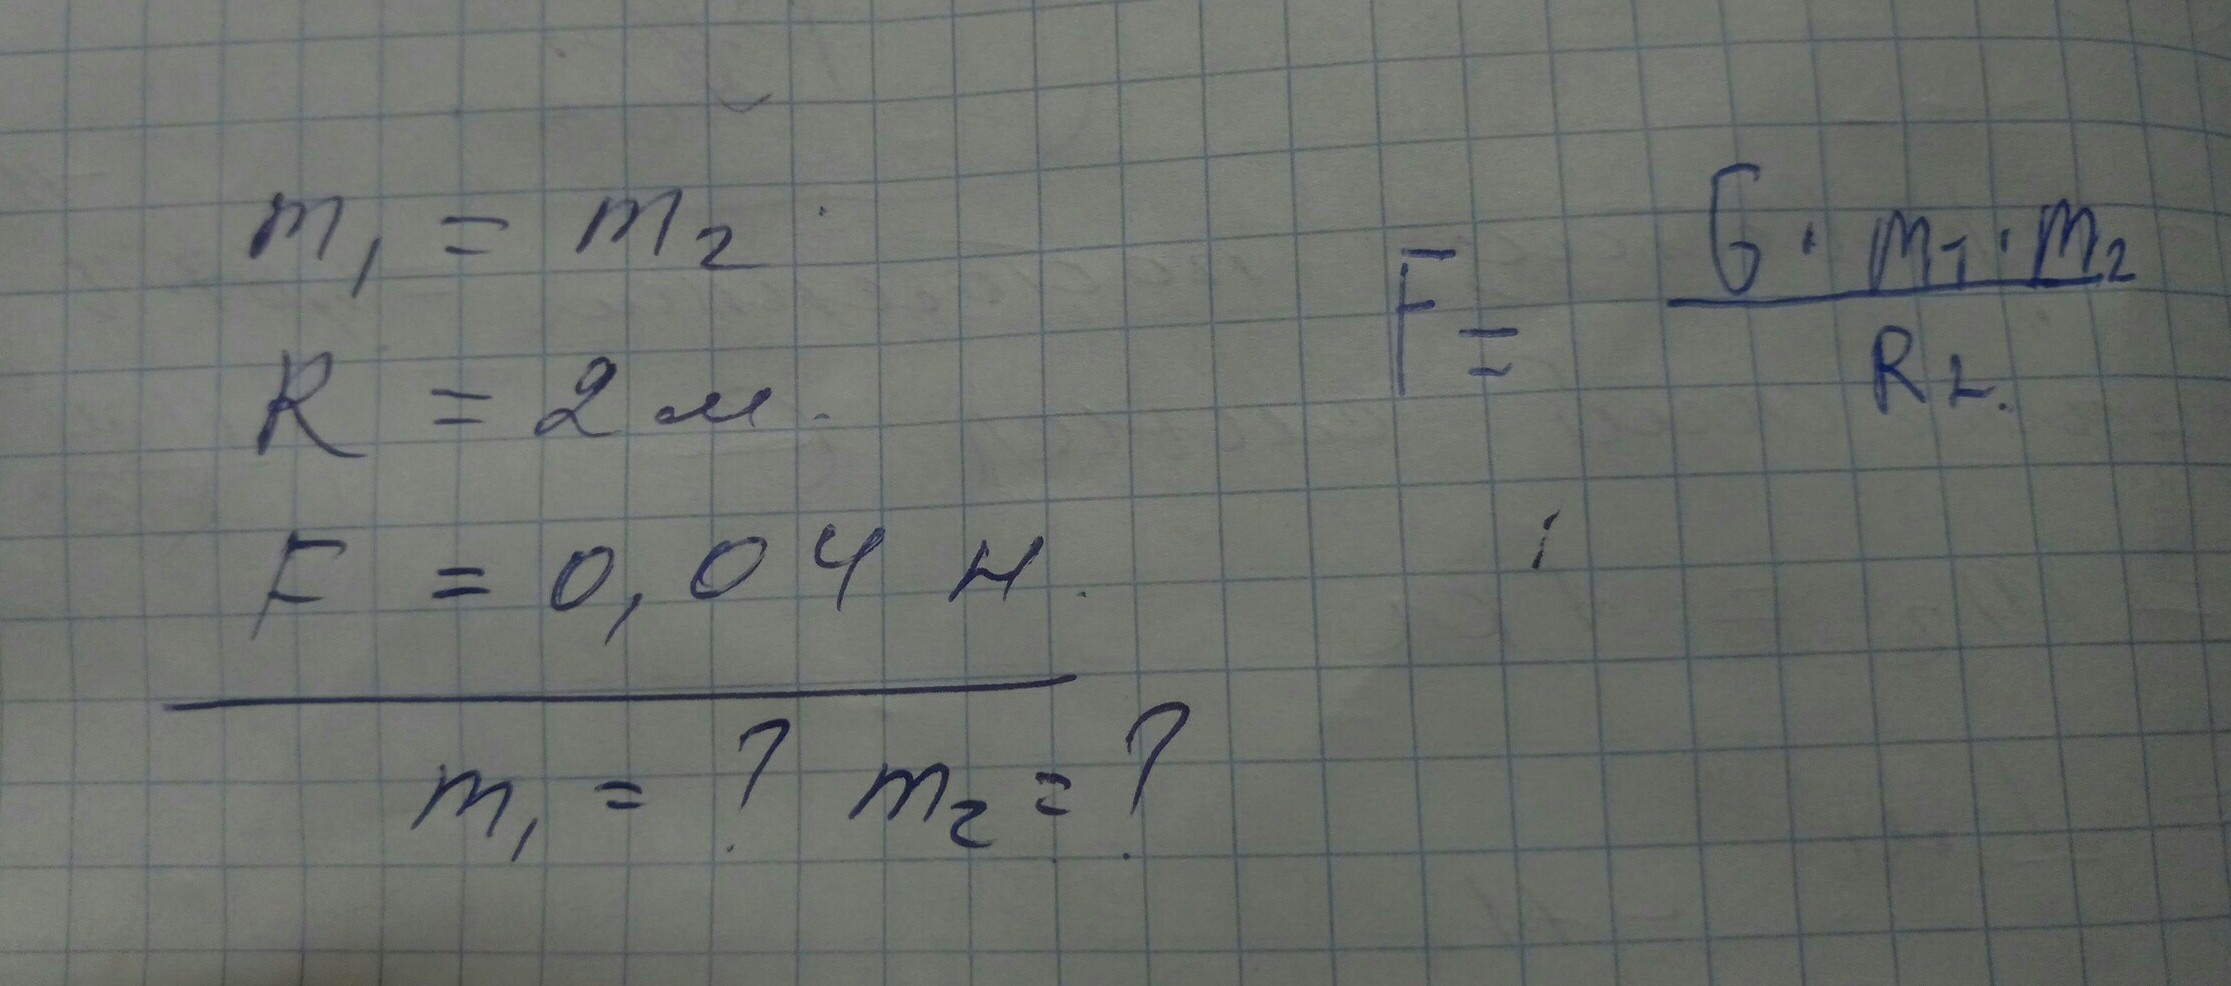 m₁ = m₂
R = 2 м.
F = 0,04 н.
m₁ = ? m₂ = ?
F = G · m₁ · m₂ / R2.